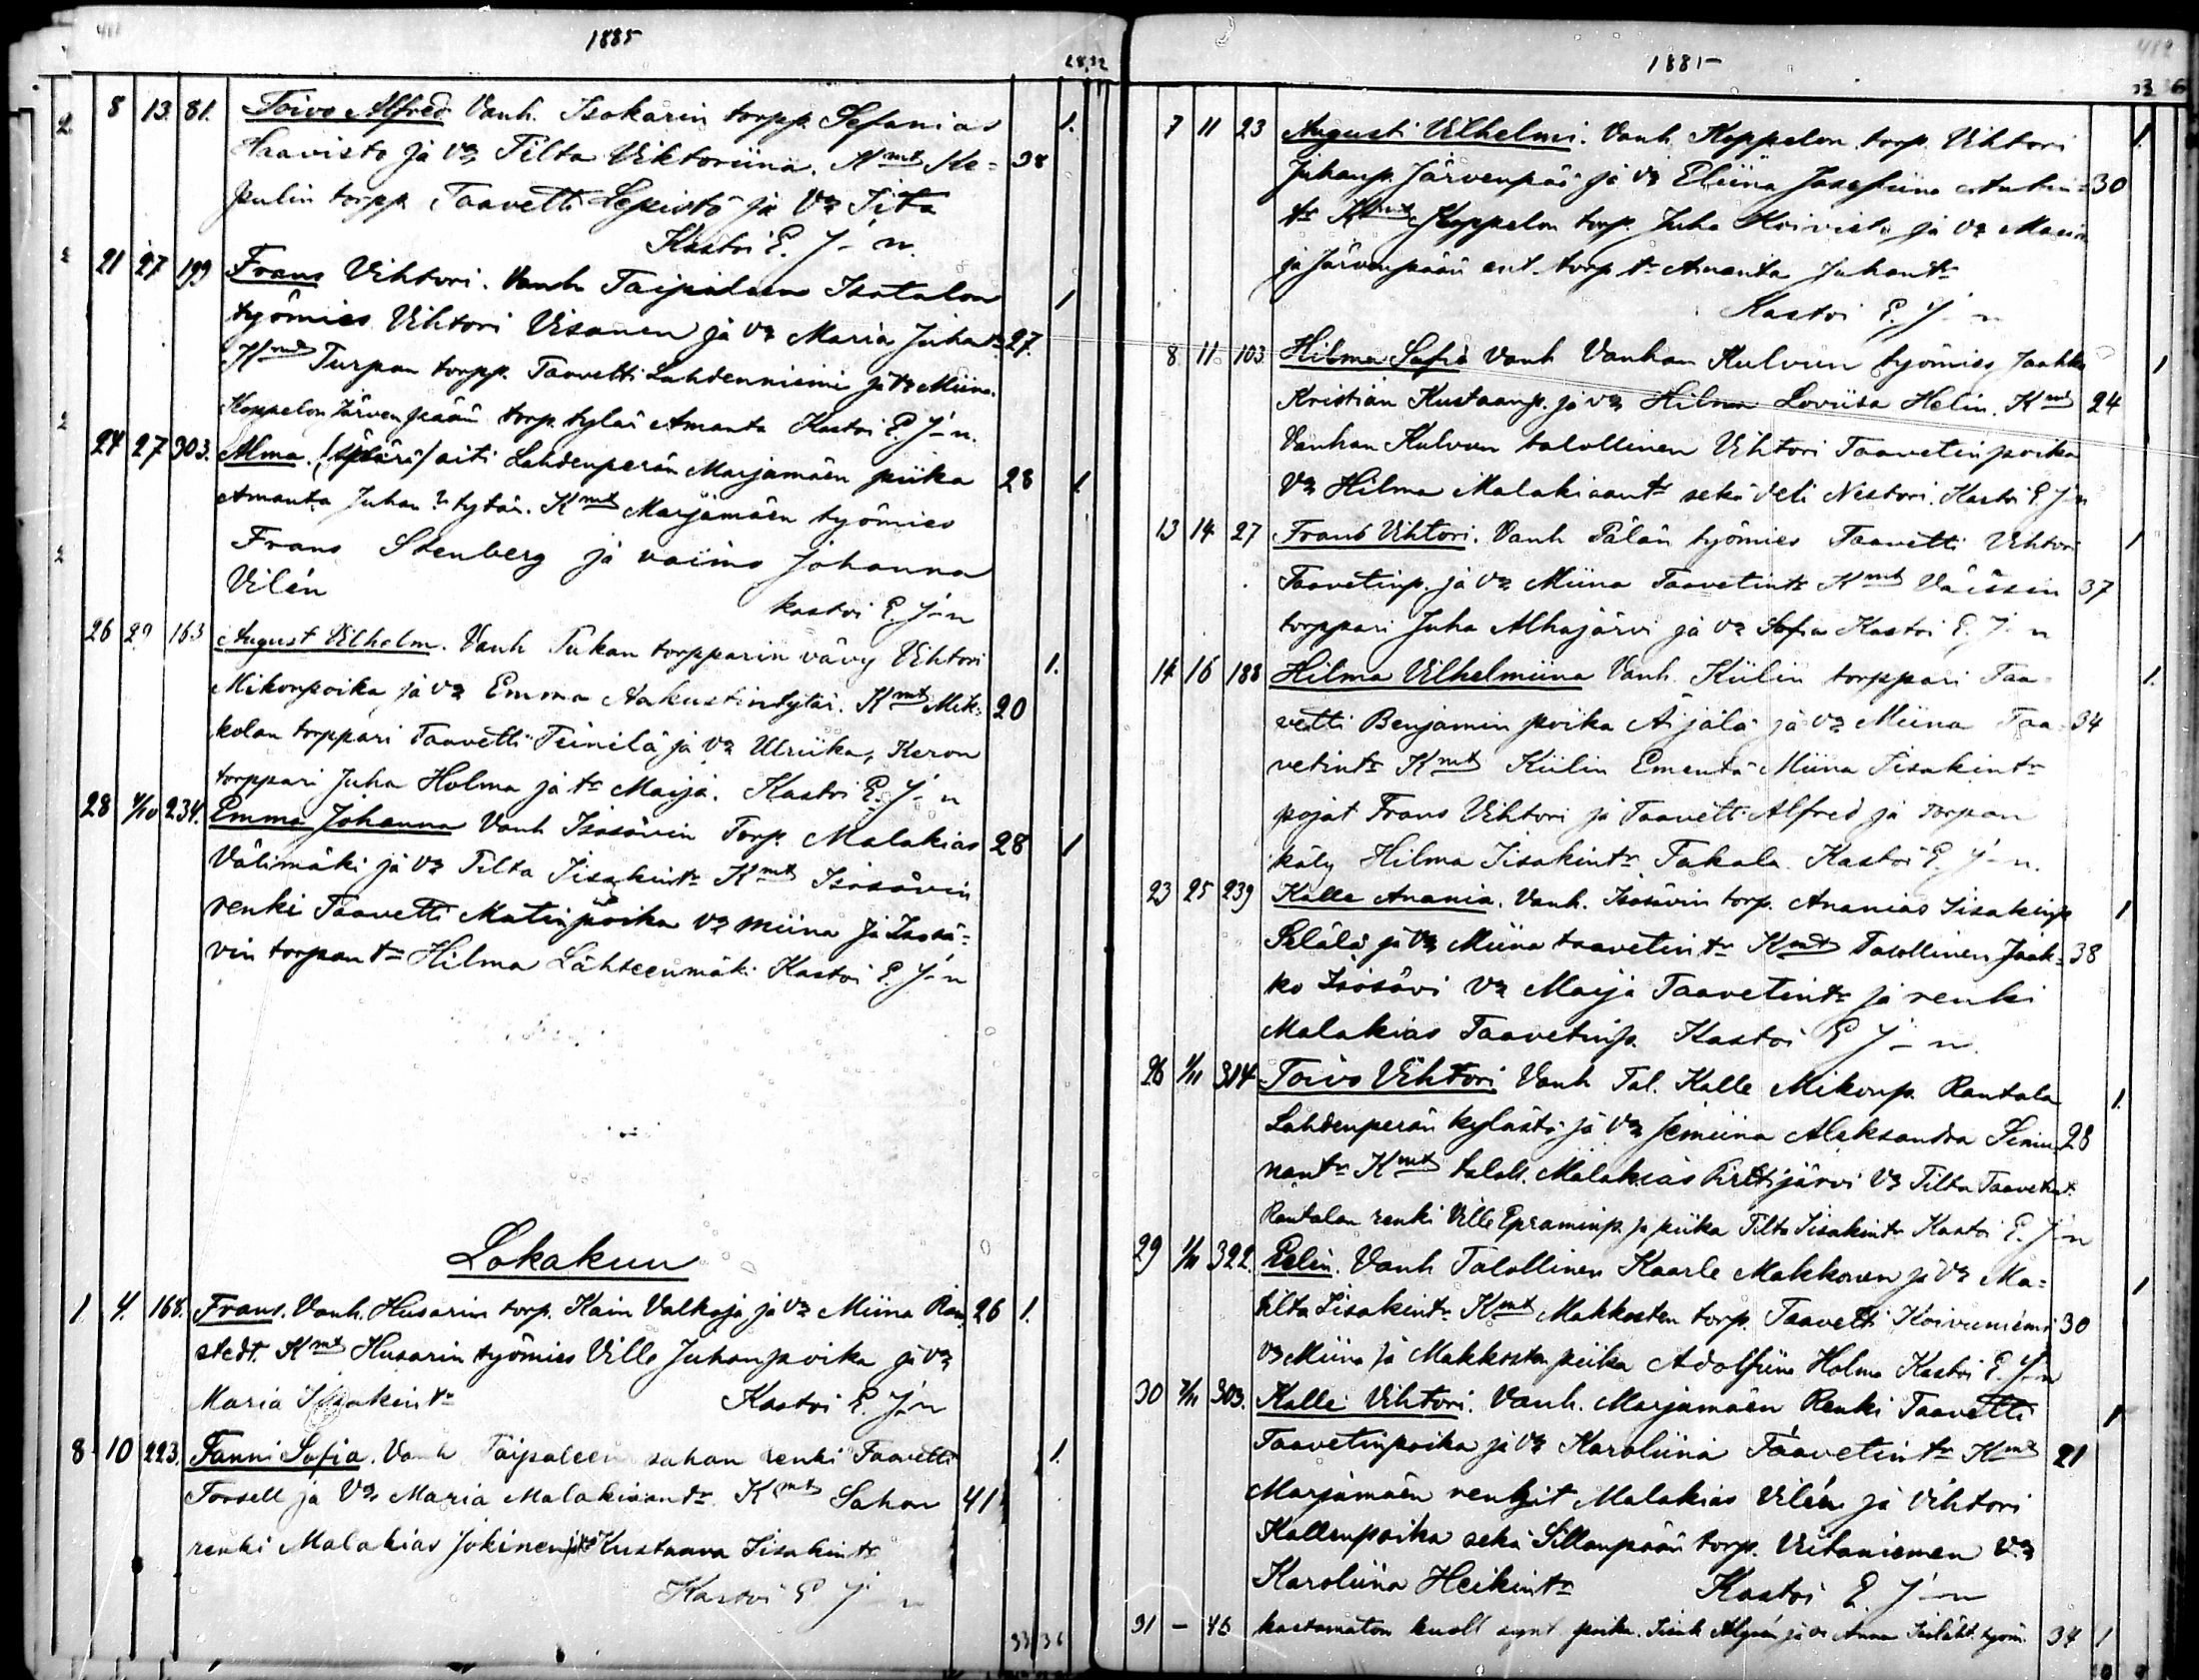 1885
28 32
8 13. 81. Toivo Alfred Vanh. Isokarin torpp. Sefanias 1.
Haavisto ja va Tilta Viktoriina. Kmt Ke= 38
pulin torpp. Taavetti Lepistö ja Va Tita
Kastoi E. J-n.
21 27 199 Frans Vihtori. Vanh Taipaleen Isotalon 1
työmies Vihtori Visanen ja va Maria Juhatr 27.
Kmt Turpan torpp. Taavetti Lahdenniemi ja va Miina.
Koppelon Järvenpään torp. tytär Amanta Kastoi E. J-n.
24 27 303. Alma. (äpärä) äiti Lahdenperän Marjamäen piika 28 1
Amanta Juhan tytär. Kmt Marjamäen työmies
Frans Stenberg ja vaimo Johanna
Vilén kastoi E. J-n
26 29 163 August Vilhelm. Vanh Tukan torpparin vävy Vihtori 1.
Mikonpoika ja va Emma Aakustintytär. Kmt Mik= 20
kolan torppari Taavetti Teinilä ja va Ulriika, Keron
torppari Juha Holma ja tr Maija. Kastoi E. J-n
28 4/10 234. Emma Johanna Vanh Isosävin Torp. Malakias 28 1
Välimäki ja va Tilta Iisakintr Kmt Isosävin
renki Taavetti Matinpoika va Miina ja Isosä=
vin torpan tr Hilma Lähteenmäki Kastoi E. J-n
Lokakuu
1 4. 168. Frans. Vanh. Husarin torp. Kain Valkaja ja va Miina Ram= 26 1.
stedt. Kmt Husarin työmies Ville Juhanpoika ja va
Maria Iisakintr Kastoi E. J-n
8 10 223. Fanni Sofia. Vanh Taipaleen sahan renki Taavetti 1.
Forsell ja Va Maria Malakiaantr. Kmt Sahan 41
renki Malakias Jokinen ja Kustaava Iisakintr
Kastoi E. J-n
33 36
1885
33 36
7 11 23 Augusti Vilhelmi. Vanh Koppelon torp. Vihtori 1.
Juhanp. Järvenpää ja va Eliina Josefiina Antin= 30
tr Kmt Koppelon torp. Juha Koivisto ja va Maria
ja Järvenpään ent. torp. tr Amanta Juhantr
Kastoi E. J-n
8 11 103 Hilma Sofia Vanh Vanhan Kulvun työmies Jaakko 1
Kristian Kustaanp. ja va Hilma Loviisa Helin. Kmt 24
Vanhan Kulvun talollinen Vihtori Taavetinpoika
Va Hilma Malakiaantr sekä veli Nestori. Kastoi E. J-n
13 14 27 Frans Vihtori. Vanh Pälän työmies Taavetti Vihtori 1
Taavetinp. ja va Miina Taavetintr Kmt Väissin 37
torppari Juha Alhajärvi ja va Sofia Kastoi E. J-n
14 16 188 Hilma Vilhelmiina Vanh. Kiilin torppari Taa= 1.
vetti Benjamin poika Äijälä ja va Miina Taa= 34
vetintr Kmt Kiilin Emäntä Miina Iisakintr
pojat Frans Vihtori ja Taavetti Alfred ja torpan
käly Hilma Iisakintr Takala. Kastoi E. J-n.
23 25 239 Kalle Anania. Vanh. Isosävin torp. Ananias Iisakinp. 1
Selälä ja va Miina taavetintr Kmt Talollinen Jaak= 38
ko Isosävi va Maija Taavetintr ja renki
Malakias Taavetinp. Kastoi E J-n.
26 1/11 314 Toivo Vihtori Vanh Tal. Kalle Mikonp. Rantala 1.
Lahdenperän kylästä ja va Jemiina Aleksandra Simu= 28
nantr Kmt taloll. Malakias Pirttijärvi va Tilta Taavetint.
Rantalan renki Ville Epraminp. ja piika Tilta Iisakintr Kastoi E. J-n
29 1/11 322. Eelin. Vanh Talollinen Kaarle Makkonen ja va Ma= 1
tilta Iisakintr. Kmt Makkosten torp. Taavetti Koivuniemi 30
va Miina ja Makkosten piika Adolfiina Holma Kastoi E. J-n
30 7/11 303. Kalle Vihtori. Vanh. Marjamäen Renki Taavetti 1
Taavetinpoika ja va Karoliina Taavetintr Kmt 21
Marjamäen rengit Malakias Vilén ja Vihtori
Kallenpoika sekä Sillanpään torp. Viitaniemen va
Karoliina Heikintr Kastoi E. J-n
31 - 46 kastamaton kuoll synt poika. ja va Anna 34 1